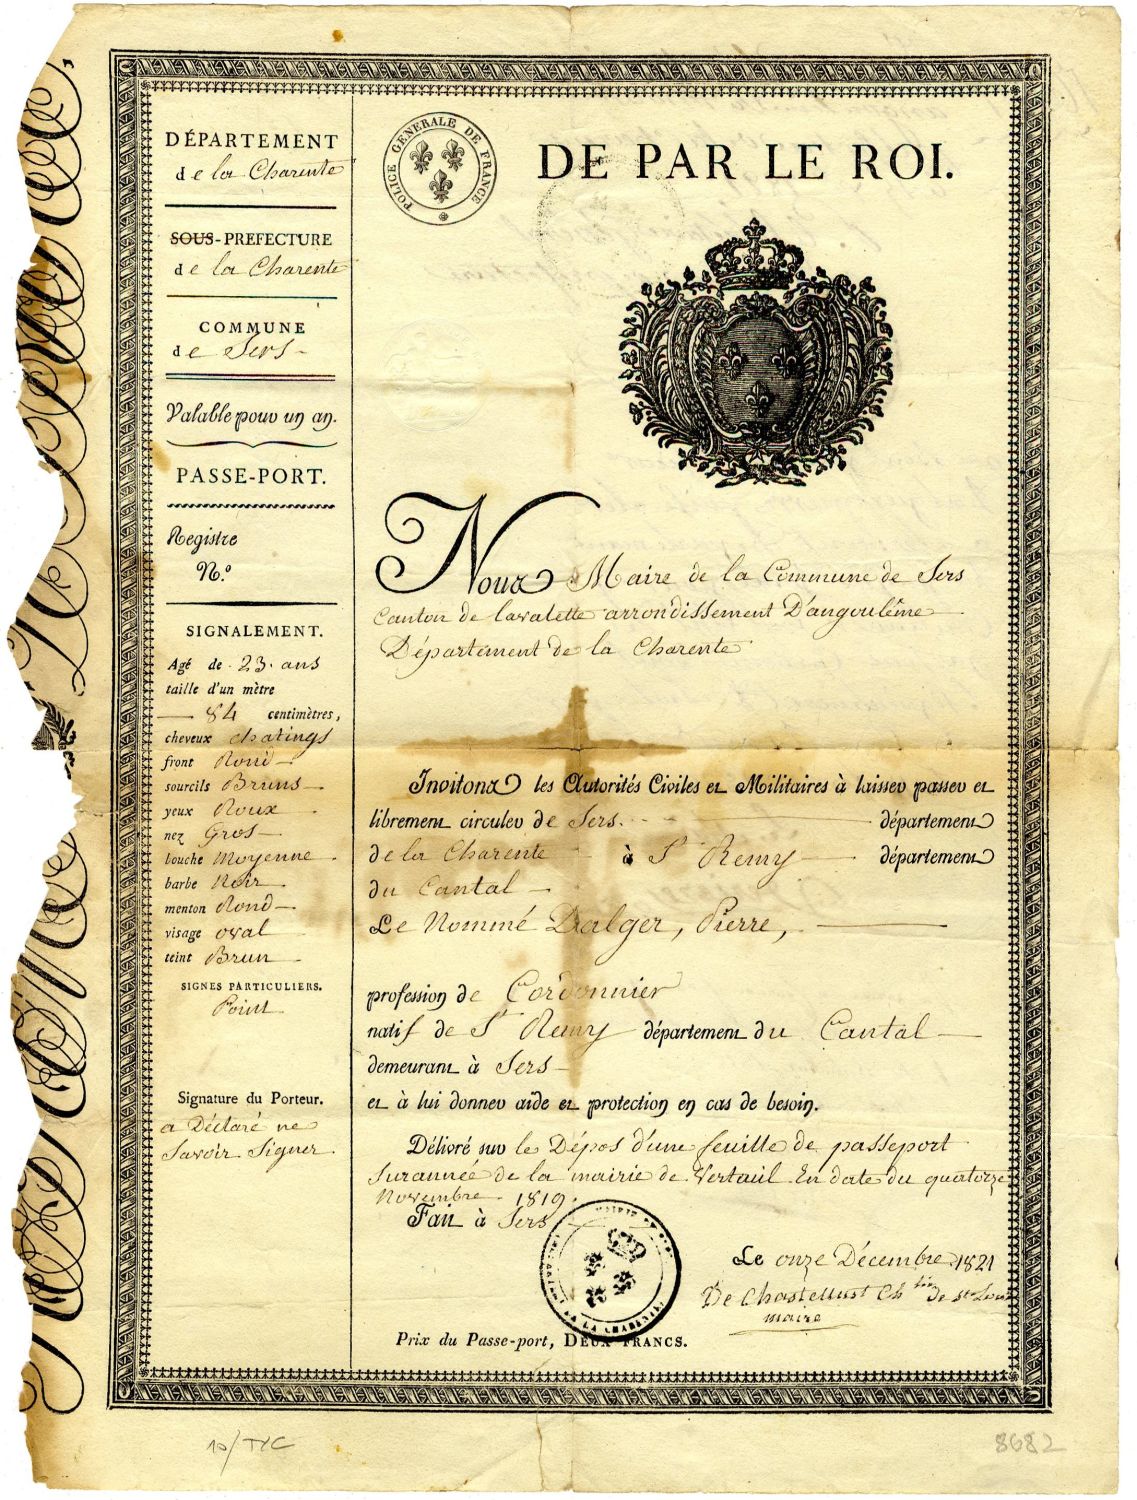 DÉPARTEMENT
de la Charente
SOUS-PREFECTURE
de la Charente
COMMUNE
de Sers
Valable pour un an.
PASSE-PORT.
Registre
N.º
SIGNALEMENT.
Agé de 23 ans
taille d'un mètre
84 centimètres,
cheveux chatings
front Rond
sourcils Bruns
yeux Roux
nez Gros
bouche Moyenne
barbe Noir
menton Rond
visage oval
teint Brun
SIGNES PARTICULIERS.
Point
Signature du Porteur.
a Déclaré ne
Savoir Signer
POLICE GENERALE DE FRANCE
DE PAR LE ROI.
Nous Maire de la Commune de Sers
Canton de lavalette arrondissement D'angoulême
Département de la Charente
Invitons les Autorités Civiles et Militaires à laisser passer et
librement circuler de Sers département
de la Charente à St Remy département
du Cantal
Le Nommé Dalger, Pierre,
profession de Cordonnier
natif de St Remy département du Cantal
demeurant à Sers
et à lui donner aide et protection en cas de besoin.
Délivré sur le Dépos d'une feuille de passeport
Surannée de la mairie de Verteuil En date du quatorze
Novembre 1819.
Fait à Sers
Le onze Décembre 1821
De Chastellust Ch de St
maire
DE LA CHARENTE
Prix du Passe-port, DEUX FRANCS.
10/TYC
8682